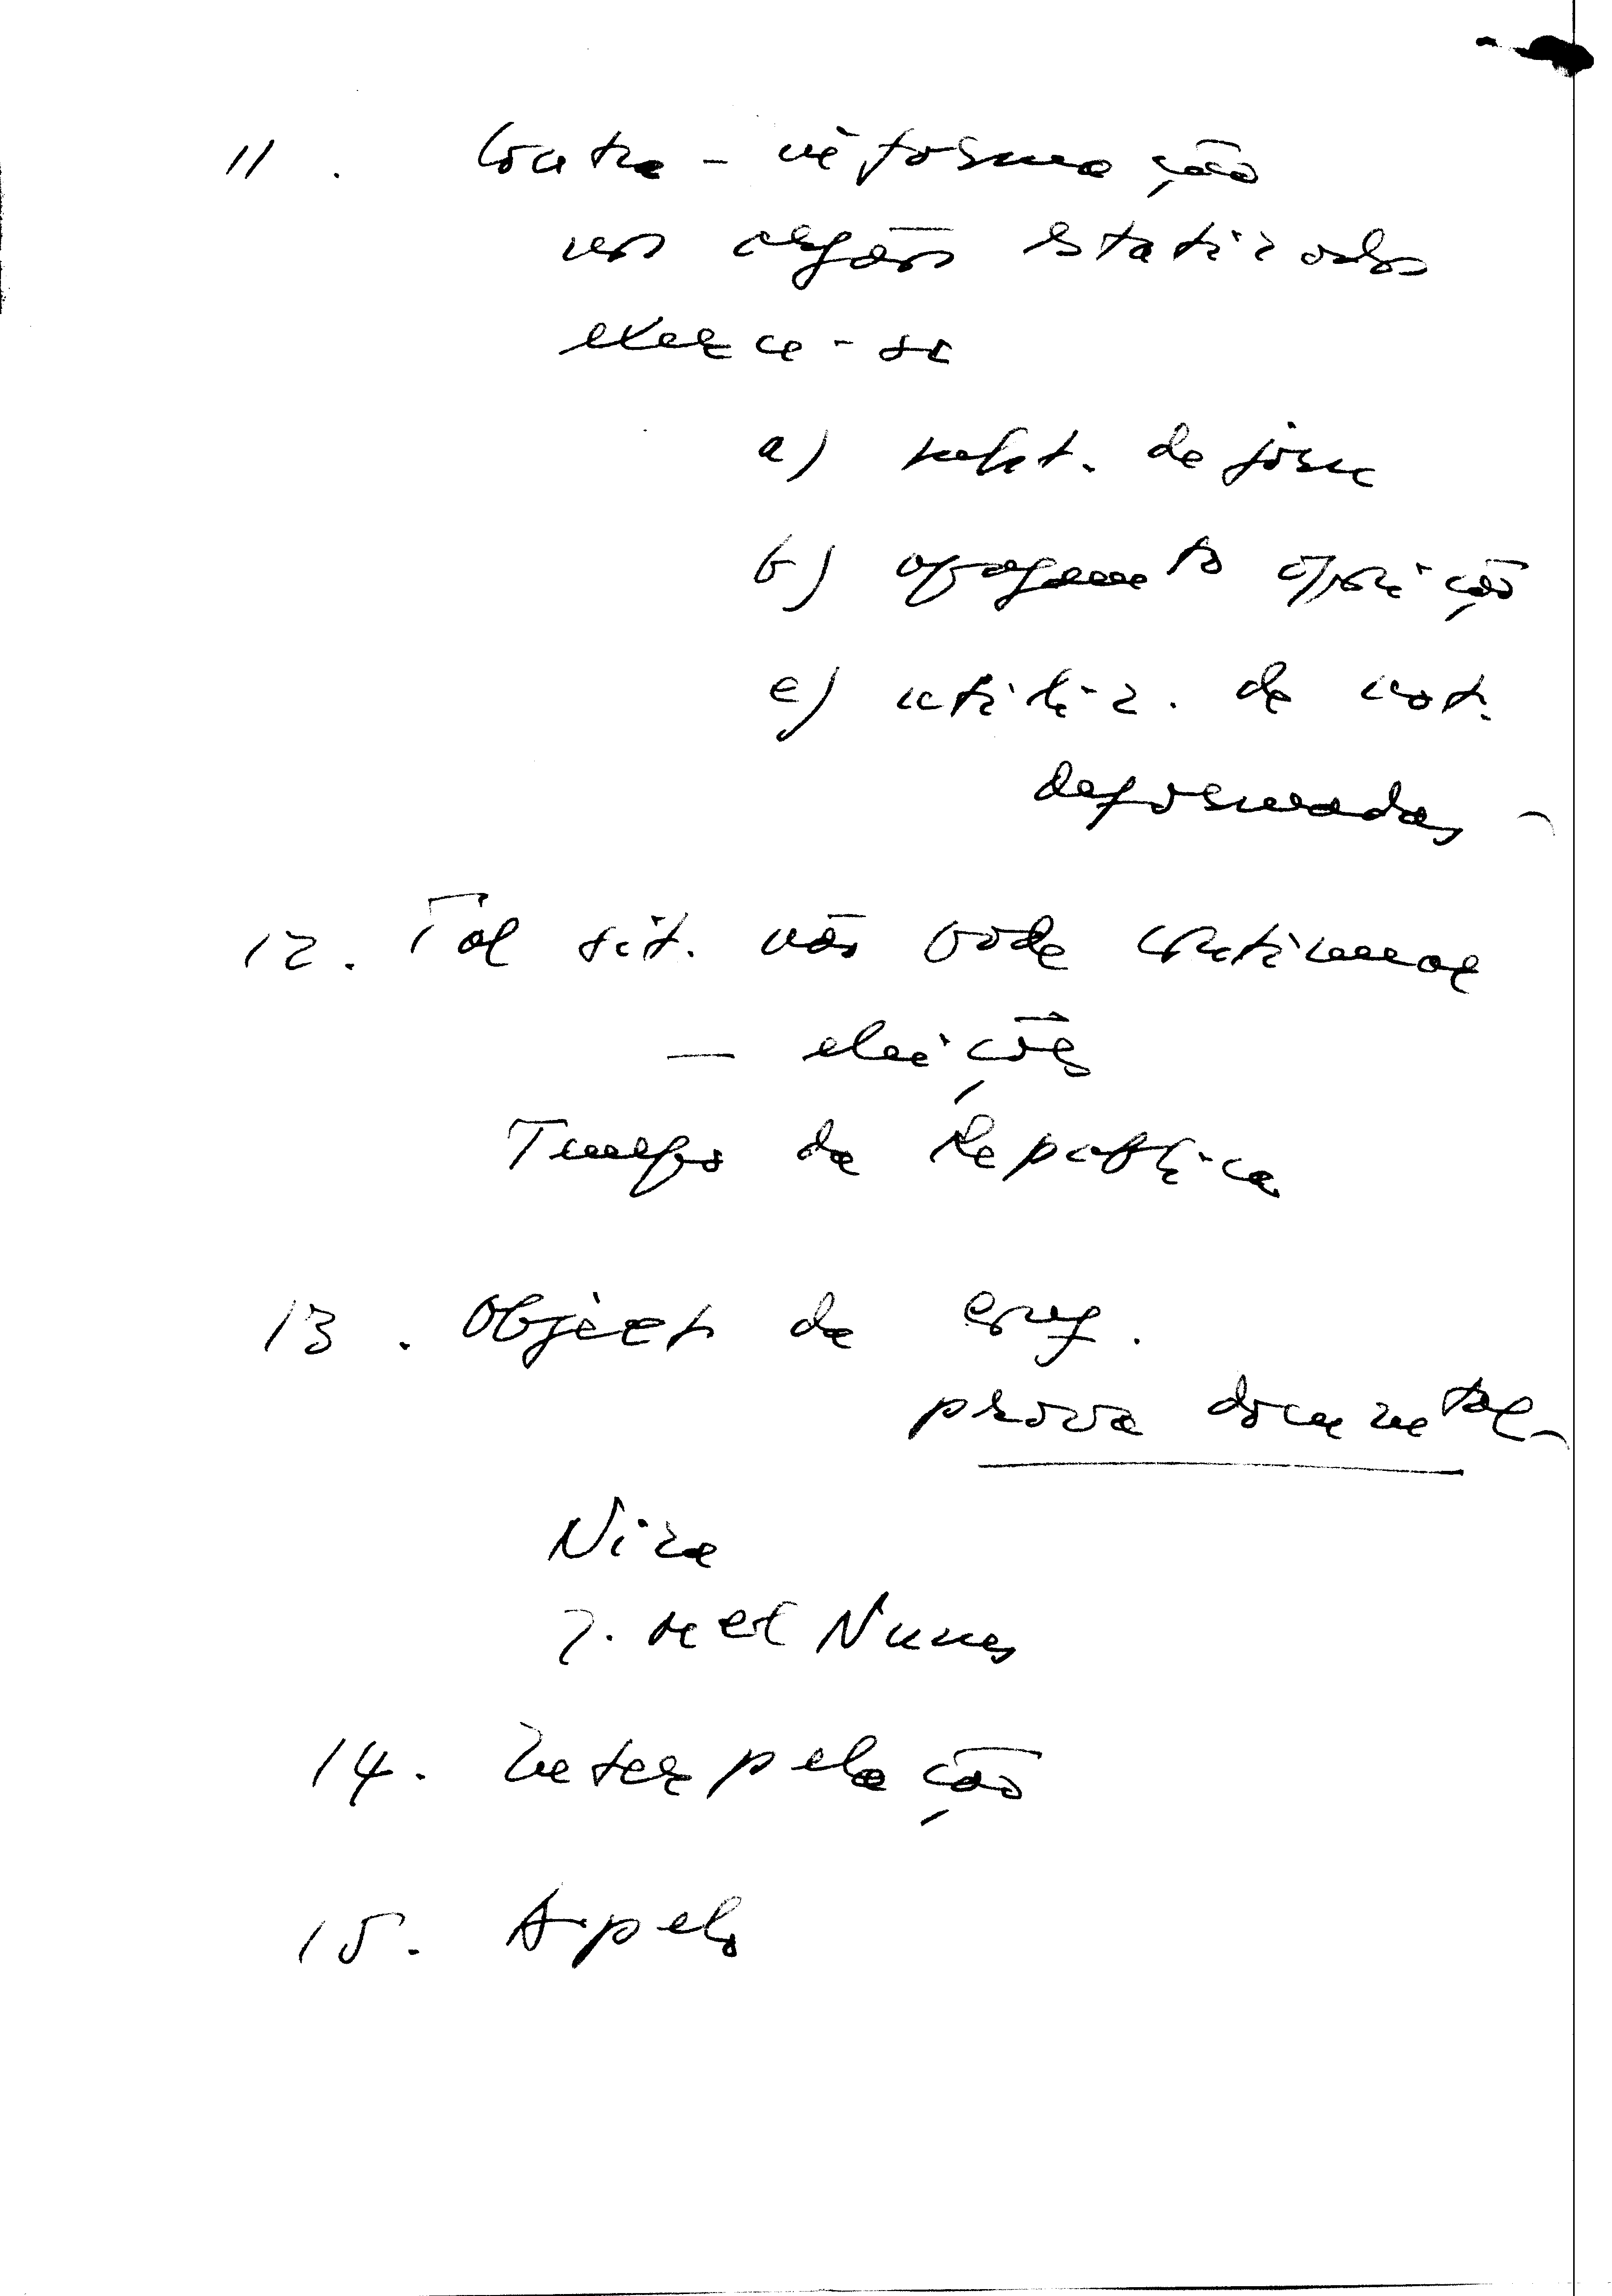 11. Contra-informação
nos orgãos estatizados
exerce-se
a) de
b) apagamento oposição
c) utiliz. de not.
deformadas
12. Tal sit. não pode continuar
— eleições
Tempo da Republica
13. Object de
prova documental
Niza
J. Nunes
14. Interpelação
15. Apelo